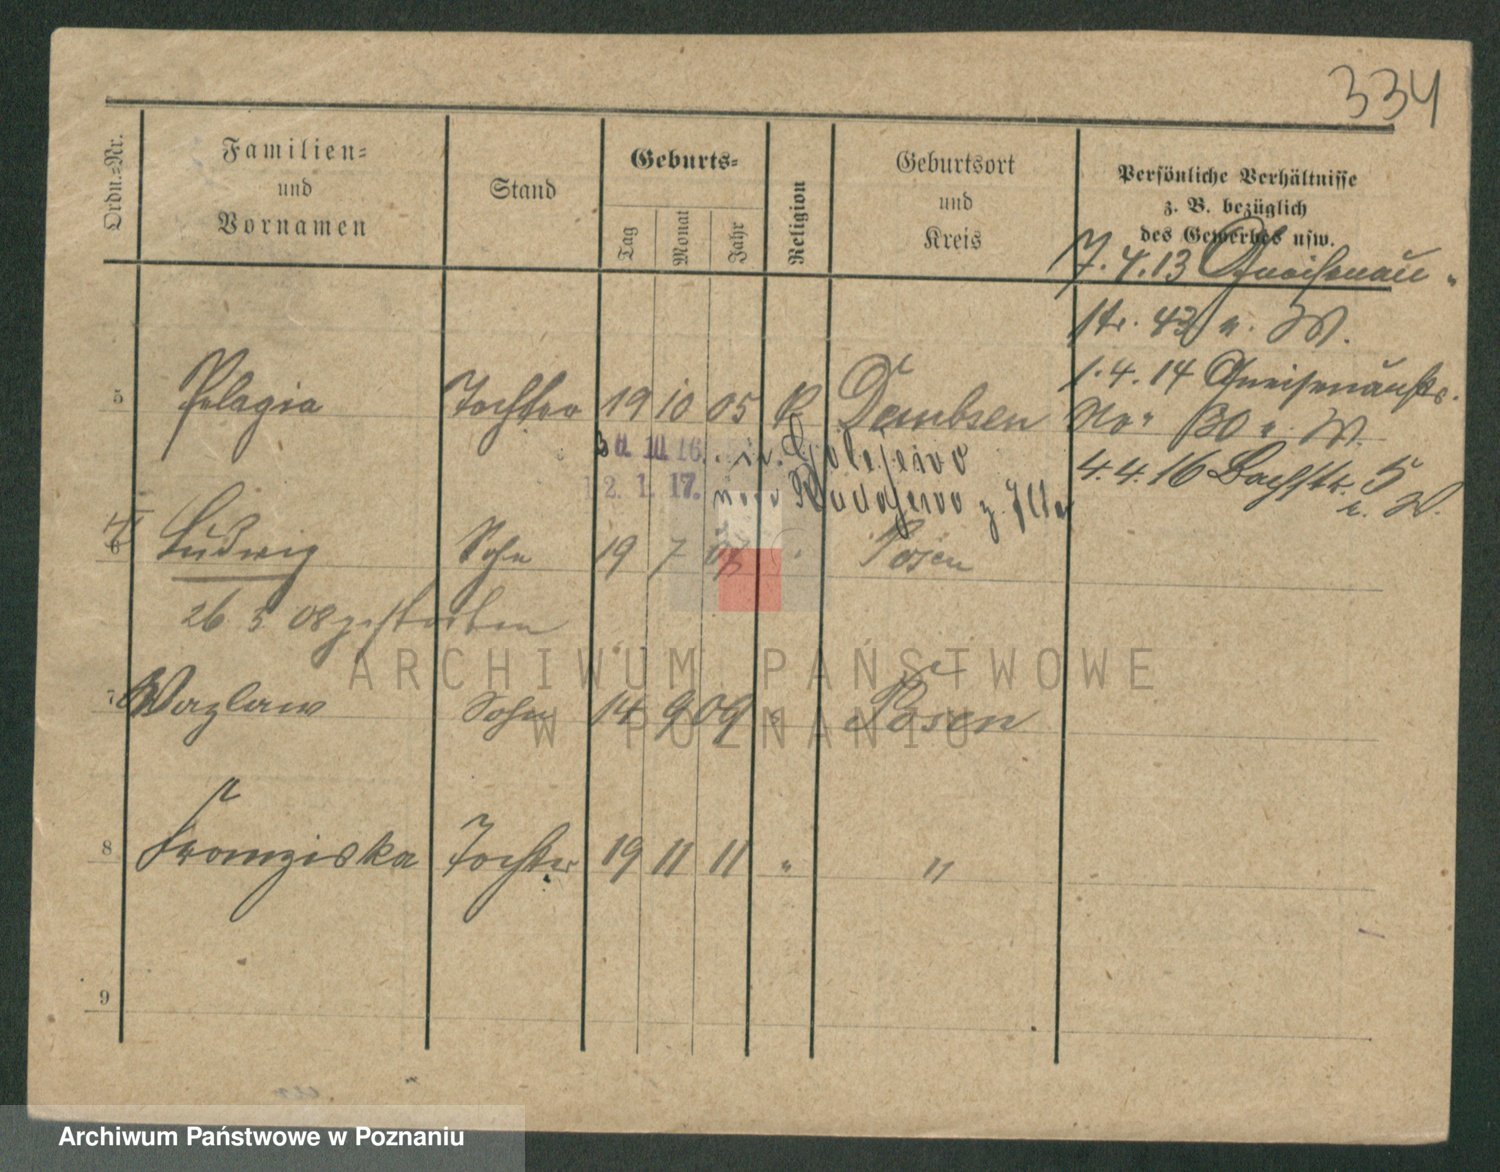 334
Ordn.-Nr.
Familien-
und
Vornamen
Stand
Geburts-
Tag
Monat
Jahr
Religion
Geburtsort
und
Kreis
Persönliche Verhältnisse
z. B. bezüglich
des Gewerbes usw.
7.4.13 Gneisenau-
str. 43 n. W.
1.4.14 Gneisenaustr.
5 Pelagia Tochter 19 10 05 R Dembsen
No 30 n. W.
30. 10. 16. in Golejewo
4.4.16 Bachstr. 5
n. W.
2. 1. 17. nach
6 Ludwig Sohn 19 7 07 " Posen
26 3 08 gestorben
ARCHIWUM PAŃSTWOWE
W POZNANIU
7 Wazlaw Sohn 14 9 09 " Posen
8 Franziska Tochter 19 11 11 " "
9
Archiwum Państwowe w Poznaniu